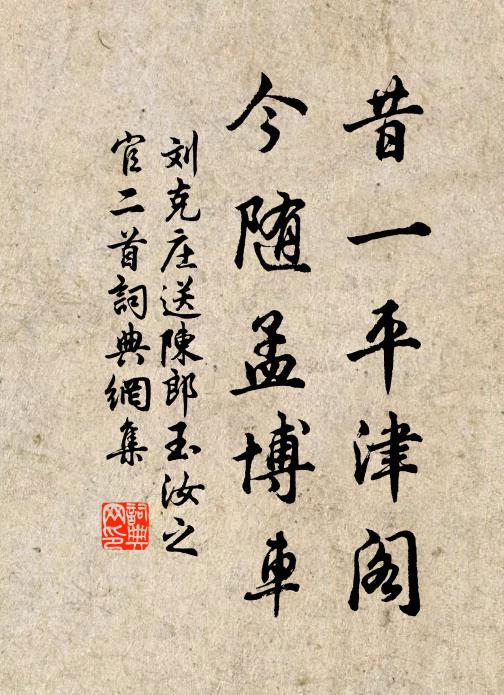 昔一平津阁
今随孟博車
刘克庄送陳郎玉汝之
官二首詞典網集
詞典
网印